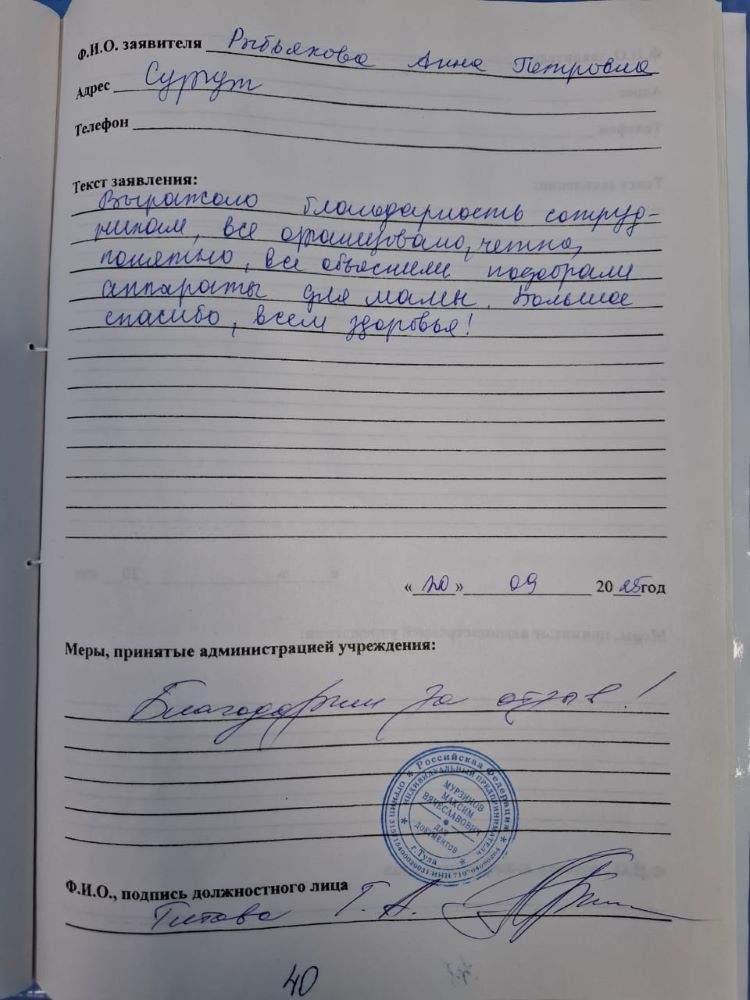 Ф.И.О. заявителя Рыбьякова Анна Петровна
Адрес Сургут
Телефон
Текст заявления:
Выражаю благодарность сотруд-
никам, все организовано, четко,
понятно, все объяснили подобрали
аппараты для мамы. Большое
спасибо, всем здоровья!
«20» 09 2025год
Меры, принятые администрацией учреждения:
Благодарим за отзыв!
Российская Федерация
ИНДИВИДУАЛЬНЫЙ ПРЕДПРИНИМАТЕЛЬ
МУРЗИНОВ
МАКСИМ
ВЯЧЕСЛАВОВИЧ
ДЛЯ
ДОКУМЕНТОВ
г.Тула
Ф.И.О., подпись должностного лица
Титова Т. А.
40